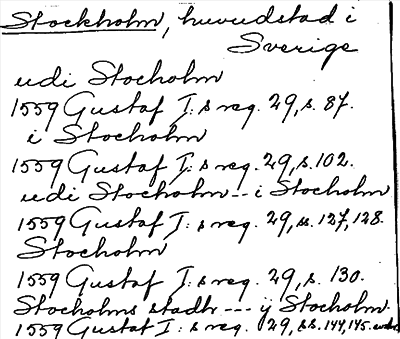 Stockholm, huvudstad i
Sverige
udi Stocholm
1559 Gustaf I:s reg. 29, s. 87.
i Stocholm
1559 Gustaf I:s reg. 29, s. 102.
udi Stocholm -- i Stocholm
1559 Gustaf I:s reg. 29, ss. 127, 128.
Stocholm
1559 Gustaf I:s reg. 29, s. 130.
Stocholms stadh --- ÿ Stocholm.
1559 Gustaf I:s reg. 29, ss. 144, 145.